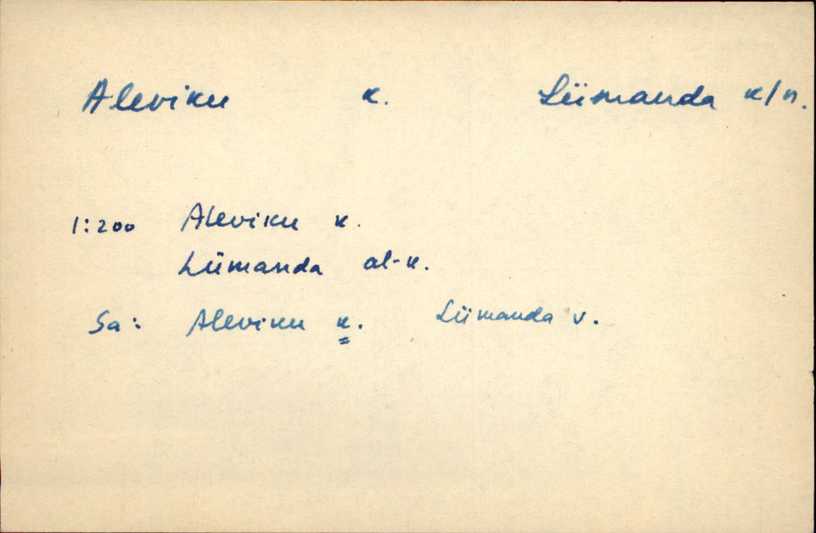 Aleviku k. Lümanda k/n.
1:200 Aleviku k.
Lümanda al-k.
Sa: Aleviku k. Lümanda v.